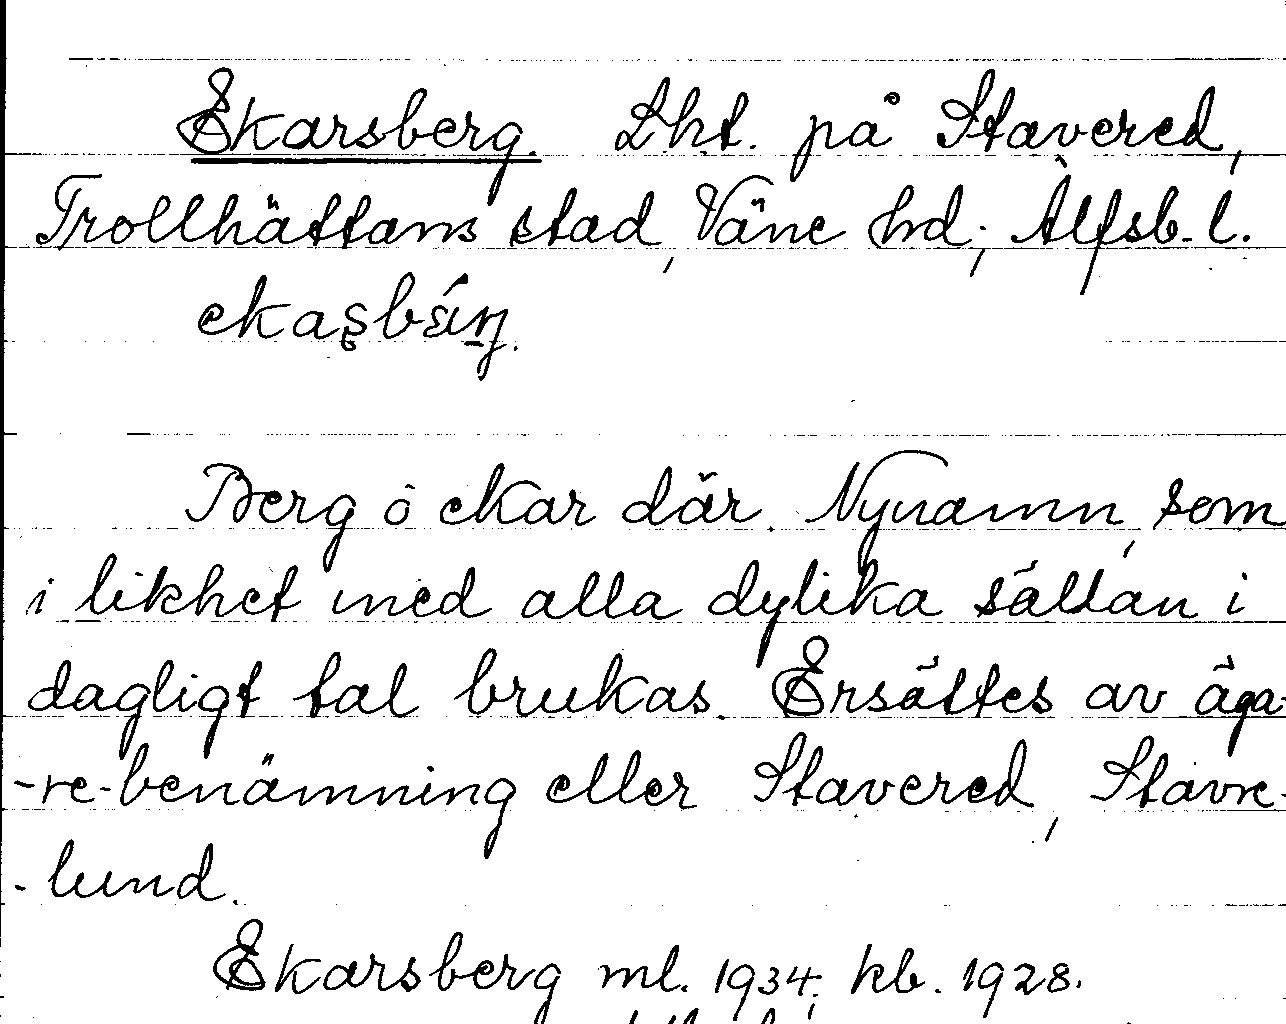 Ekarsberg. Lht. på Stavered,
Trollhättans stad, Väne hd; Älfsb. l.
Berg ô ekar där. Nynamn, som
i likhet med alla dylika sällan i
dagligt tal brukas. Ersättes av äga-
-re-benämning eller Stavered, Stavre-
-lund.
Ekarsberg ml. 1934; kb. 1928.